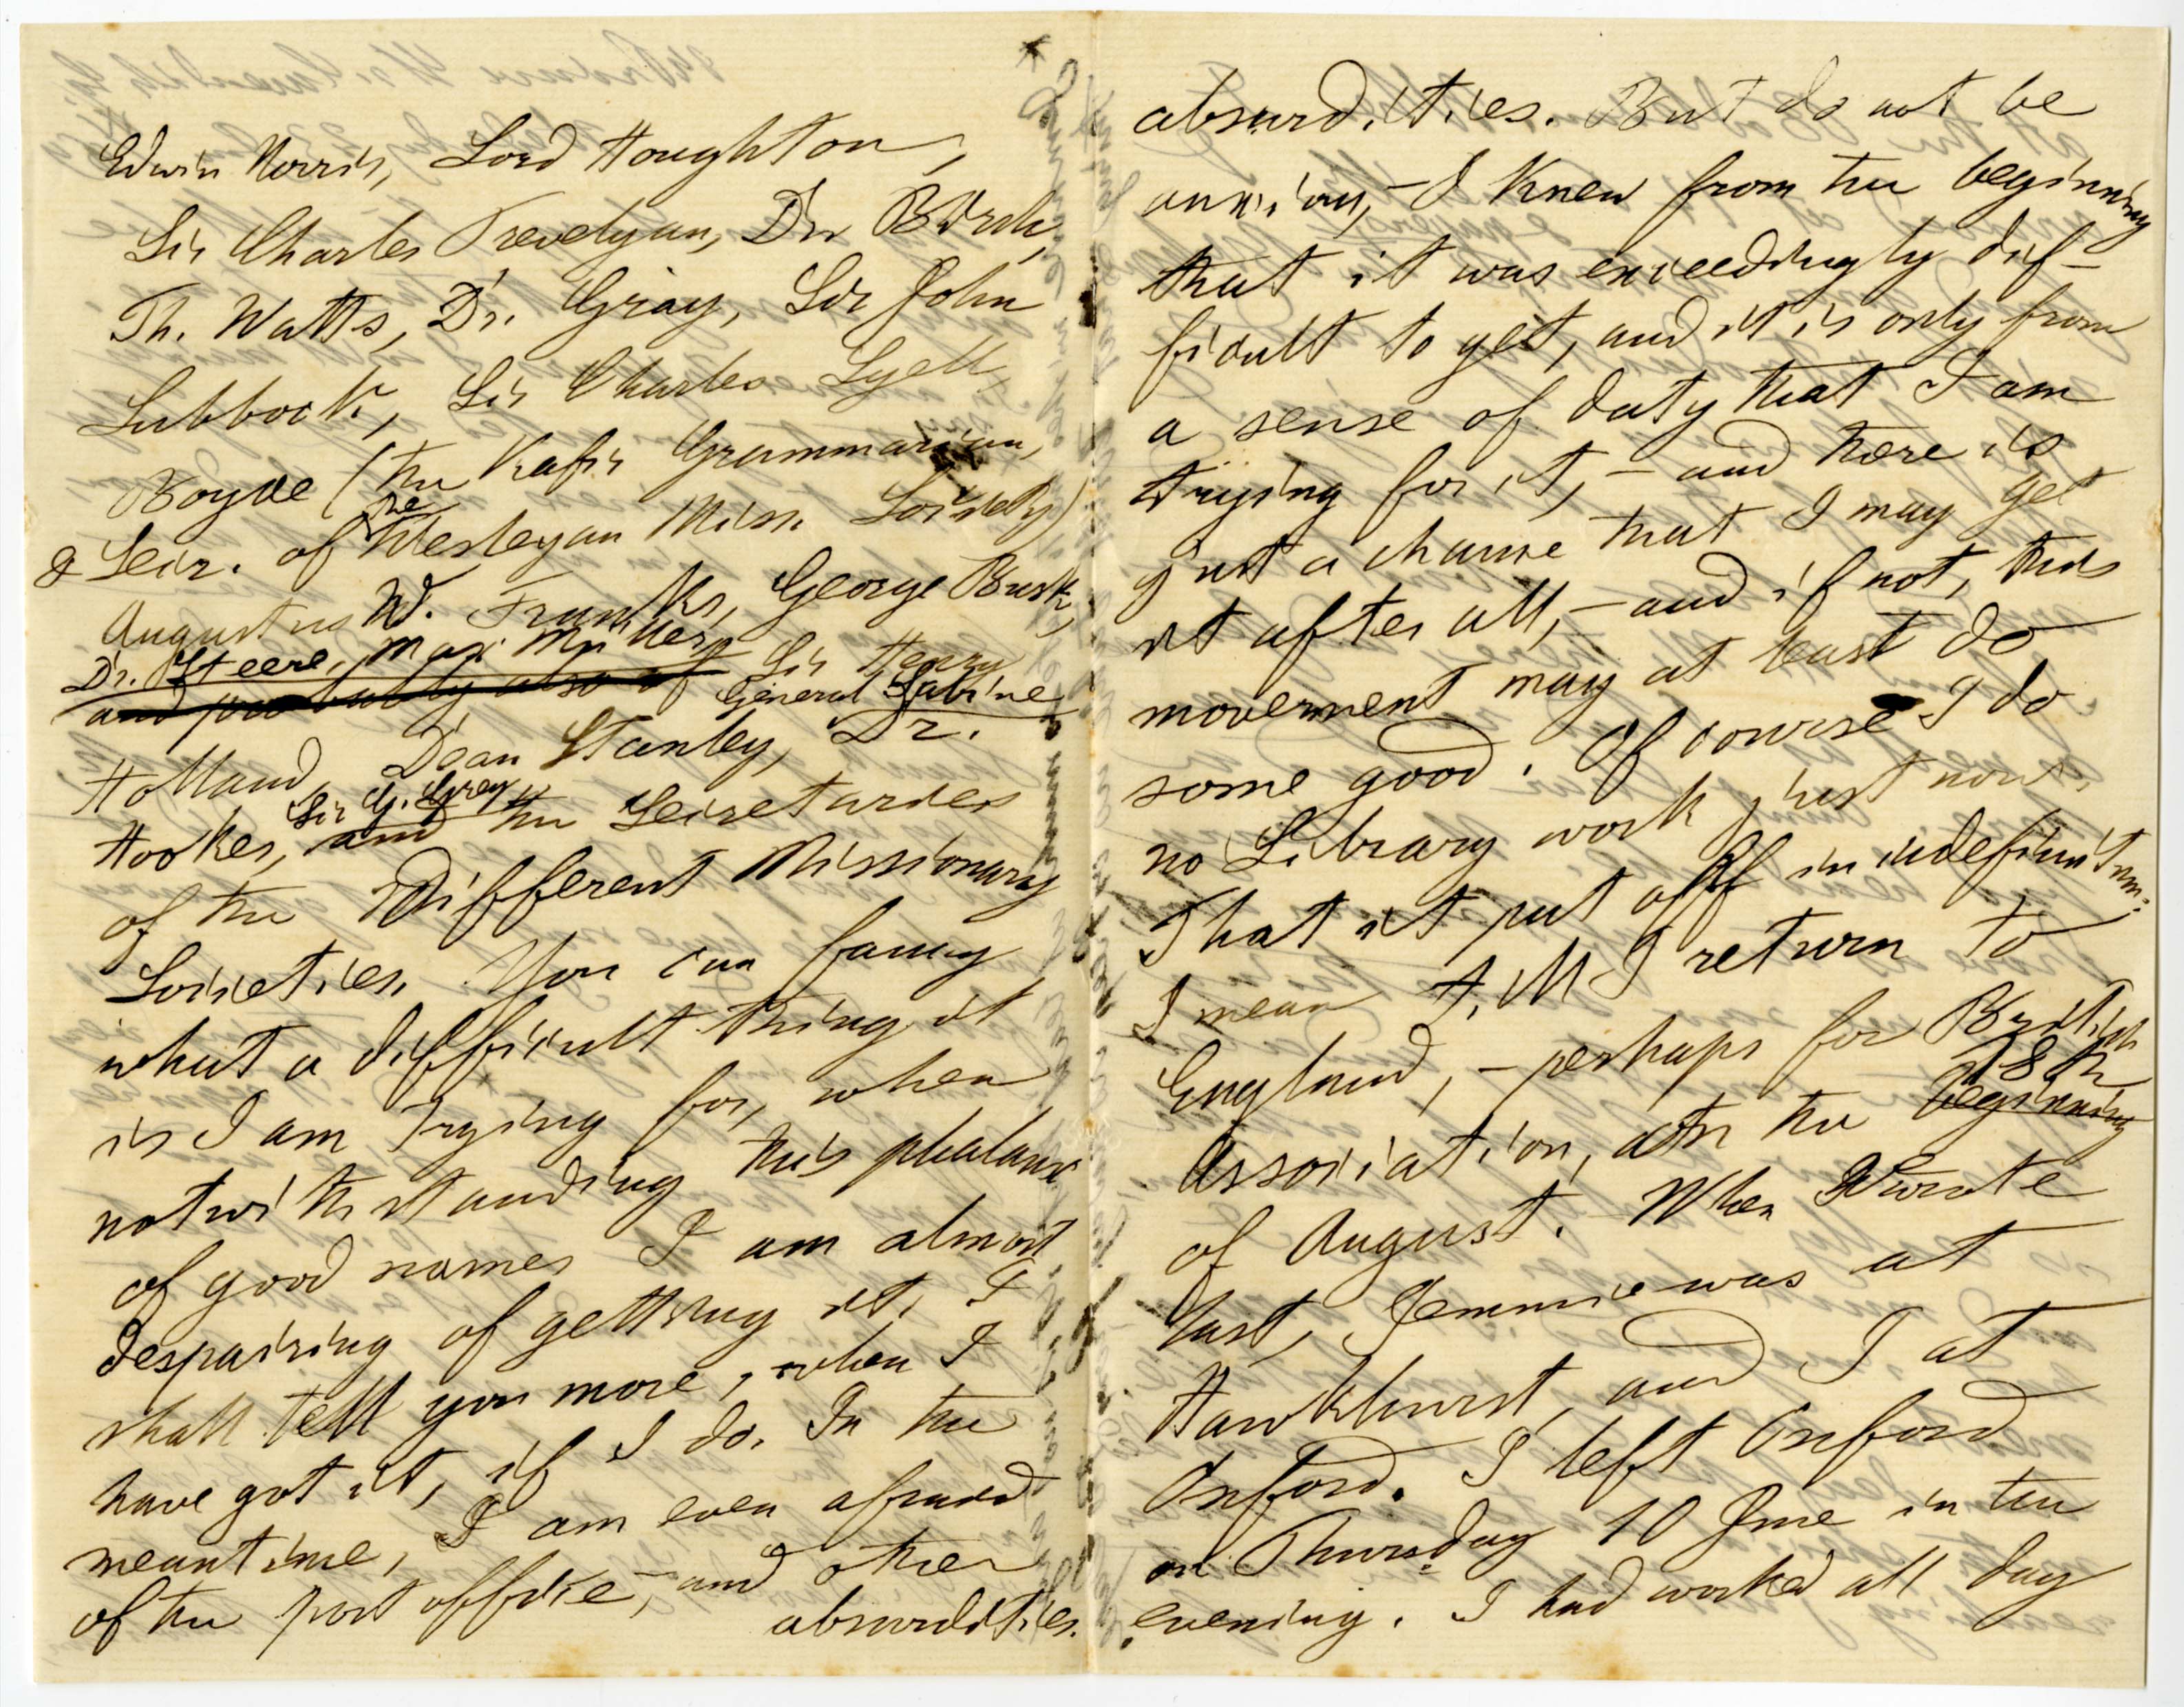 Edwin Norris, Lord Houghton,
Sir Charles Trevelyan, Dr Birch,
Th. Watts, Dr. Gray, Sir John
Lubbock, Sir Charles Lyell,
Boyce (the Kafir Grammarian,
& Secr. of the Wesleyan Miss. Society)
Augustus W. Franks, George Busk,
Dr. Steere, Max Müller, Sir Henry
and probably also of General Sabine
Holland, Dean Stanley, Dr.
Hooker, Sir G. Grey and the Secretaries
of the Different Missionary
Societies. You can fancy
what a difficult thing it
is I am trying for, when
notwithstanding this phalanx
of good names I am almost
despairing of getting it. I
shall tell you more, when I
have got it, if I do. In the
meantime, I am even afraid
of the post office, and other
absurdities.
absurdities. But do not be
anxious, – I knew from the beginning
that it was exceedingly dif-
ficult to get, and it is only from
a sense of duty that I am
trying for it, – and there is
just a chance that I may get
it after all, – and if not, this
movement may at least do
some good. Of course I do
no Library work just now.
That is put off in indefinitum.
I mean till I return to
England, – perhaps for British
Association, 18th
at the beginning
of August. When I wrote
last, Jemmie was at
Hawkhurst, and I at
Oxford. I left Oxford
on Thursday 10 June in the
evening. I had worked all day